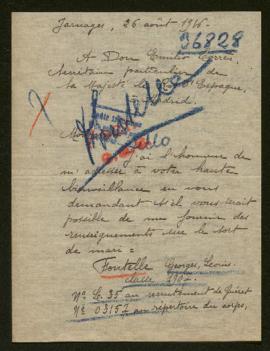 Jarnages, 26 août 1916
36828
A Don Emilio Torres,
Secrétaire particulier de
Sa Majesté le d'Espagne,
Madrid.
J'ai l'honneur de
m'adresser à votre haute
bienveillance en vous
demandant s'il vous serait
possible de me fournir des
renseignements sur le sort
de mon mari =
Fontelle Georges, Louis
classe 1902.
N° 35 au recrutement de Guéret
N° 03157 au répertoire du corps,